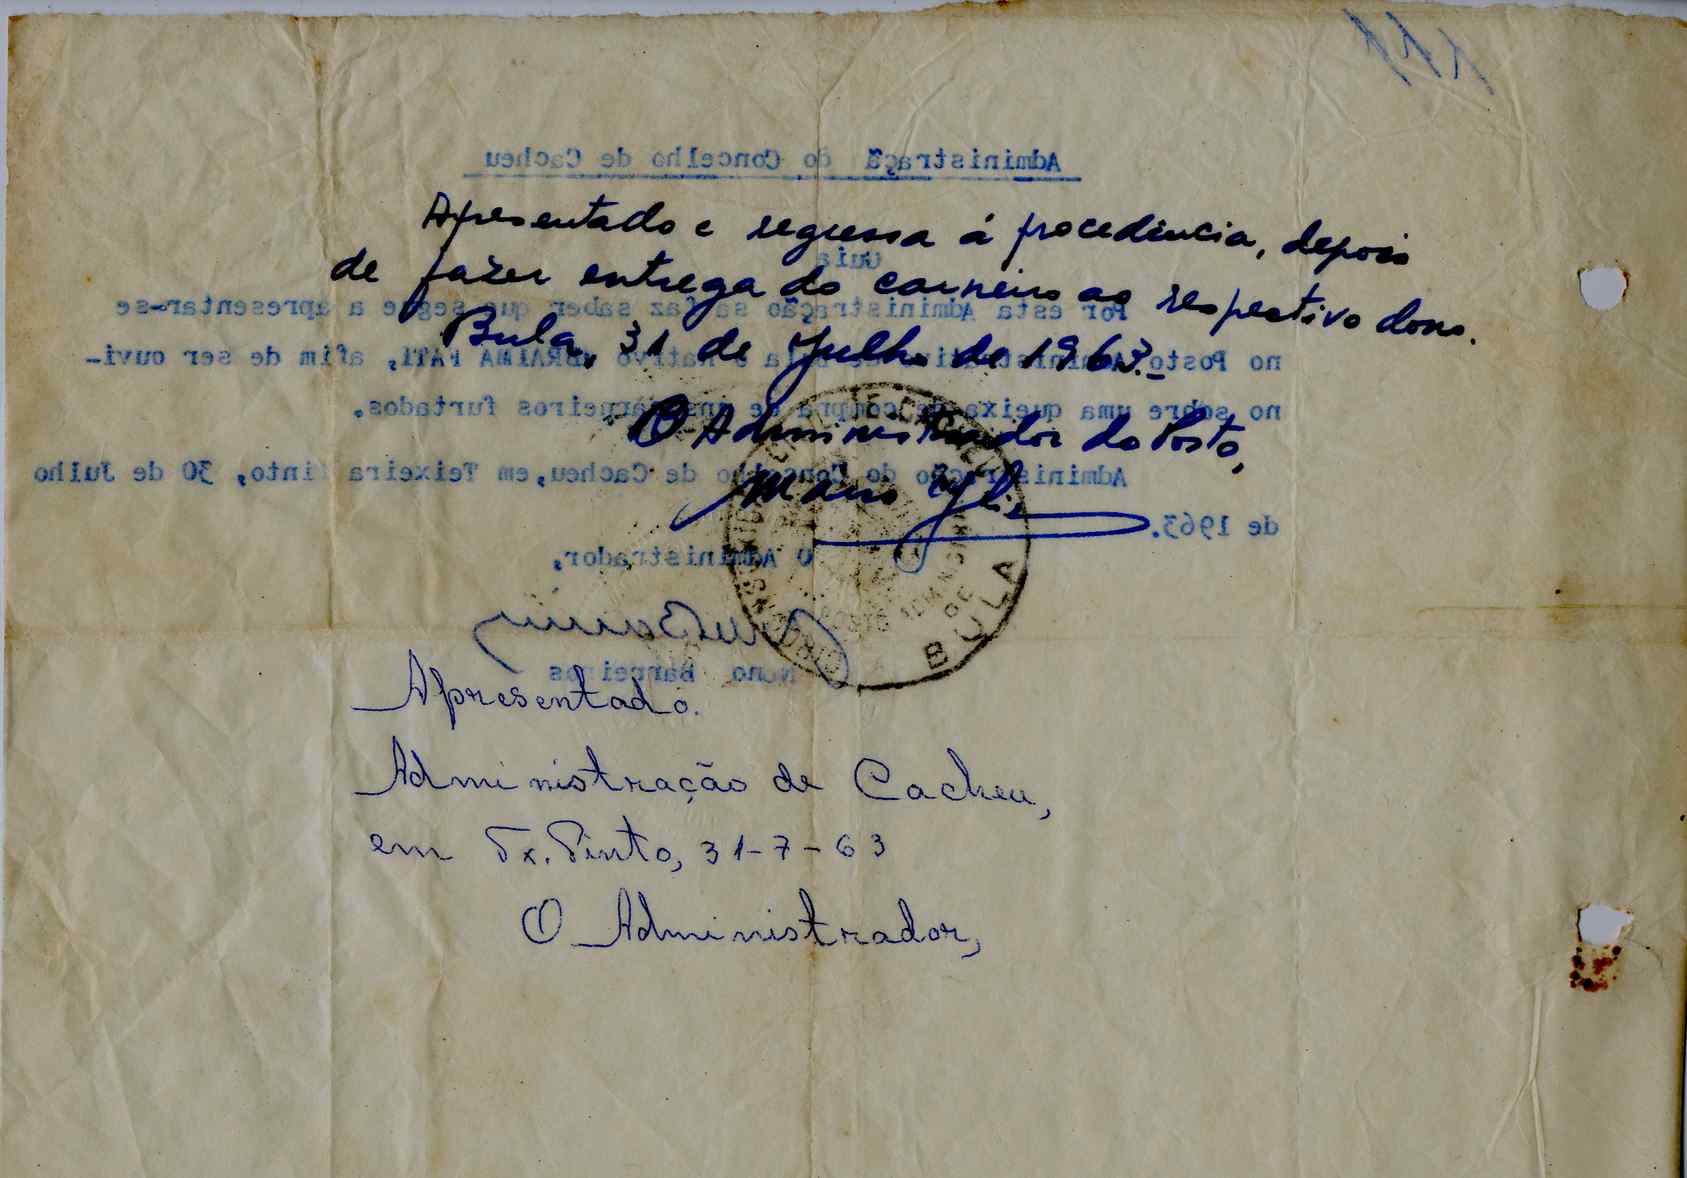 Administraçã do Concelho de Cacheu
Apresentado e regressa á procedência, depois
Guia
de fazer entrega do carneiro ao respectivo dono.
Por esta Administração se faz saber que segue a apresentar-se
Bula, 31 de Julho de 1963.-
no Posto Administrativo de Bula o nativo IBRAIMA FATI, afim de ser ouvi-
no sobre uma queixa de compra de uns carneiros furtados.
O Administrador do Posto,
Administração do Concelho de Cacheu, em Teixeira Pinto, 30 de Julho
de 1963.
O Administrador,
BULA
Nuno Barreiros
Apresentado.
Administração de Cacheu,
em Tx. Pinto, 31-7-63
O Administrador,